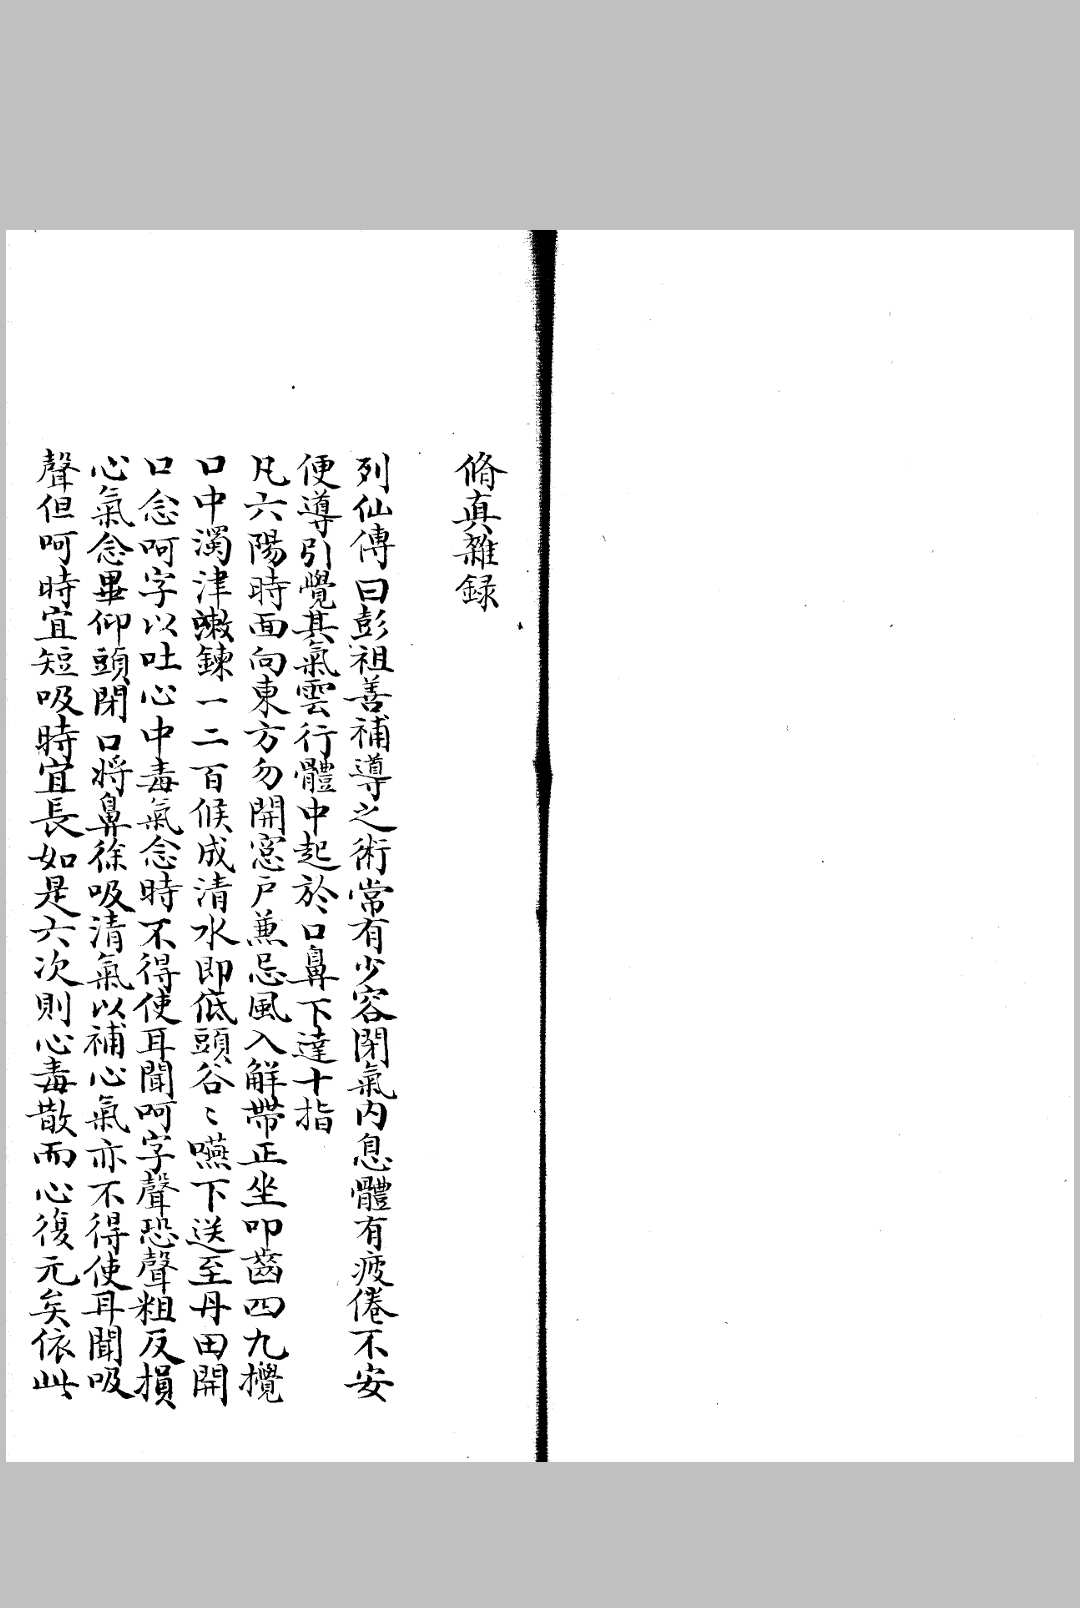 脩真雜録
列仙傳曰彭祖善補導之術常有少容閉氣内息體有疲倦不安
便導引覺其氣雲行體中起於口鼻下達十指
凡六陽時面向東方勿開窓戸兼忌風入解帶正坐叩齒四九攪
口中濁津漱鍊一二百候成清水即低頭谷〻嚥下送至丹田開
口念呵字以吐心中毒氣念時不得使耳聞呵字聲恐聲粗反損
心氣念畢仰頭閉口將鼻徐吸清氣以補心氣亦不得使耳聞吸
聲但呵時宜短吸時宜長如是六次則心毒散而心復元矣依此